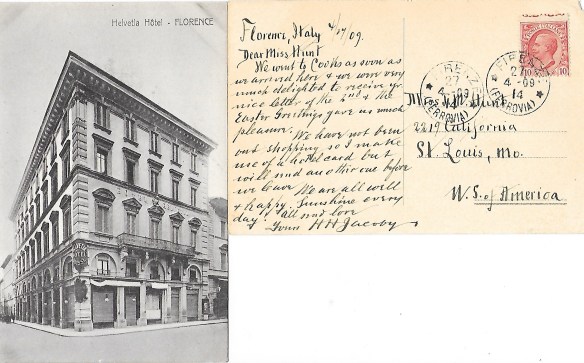 Helvetia Hôtel - FLORENCE
Florence, Italy 4/27/09.
Dear Miss Hunt
We went to Cooks as soon as
we arrived here & we were very
much delighted to receive yr
nice letter of the 2nd & the
Easter Greetings gave us much
pleasure. We have not been
out shopping so I make
use of a hotel card but
will send another one before
we leave. We are all well
& happy. Sunshine every
day. All send love
Yours H H Jacoby
FIRENZE
27
4 - 09
14
(FERROVIA)
FIRENZE
27
4 - 09
14
(FERROVIA)
10
Hunt
2219 California
St. Louis, Mo.
U.S. of America